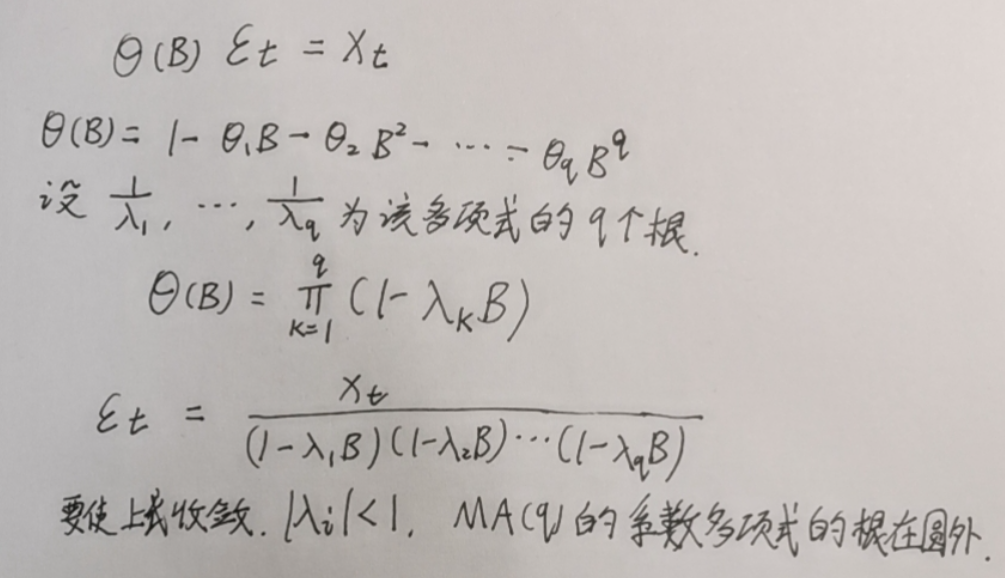 θ(B) εt = Xt
θ(B) = 1 - θ₁B - θ₂B² - ⋯ - θqB^q
设 1/λ₁, ⋯, 1/λq 为该多项式的 q个根.
θ(B) = ∏_{k=1}^{q} (1 - λkB)
εt = Xt / (1-λ₁B)(1-λ₂B)⋯(1-λqB)
要使上式收敛. |λi|<1, MA(q) 的系数多项式的根在圆外.